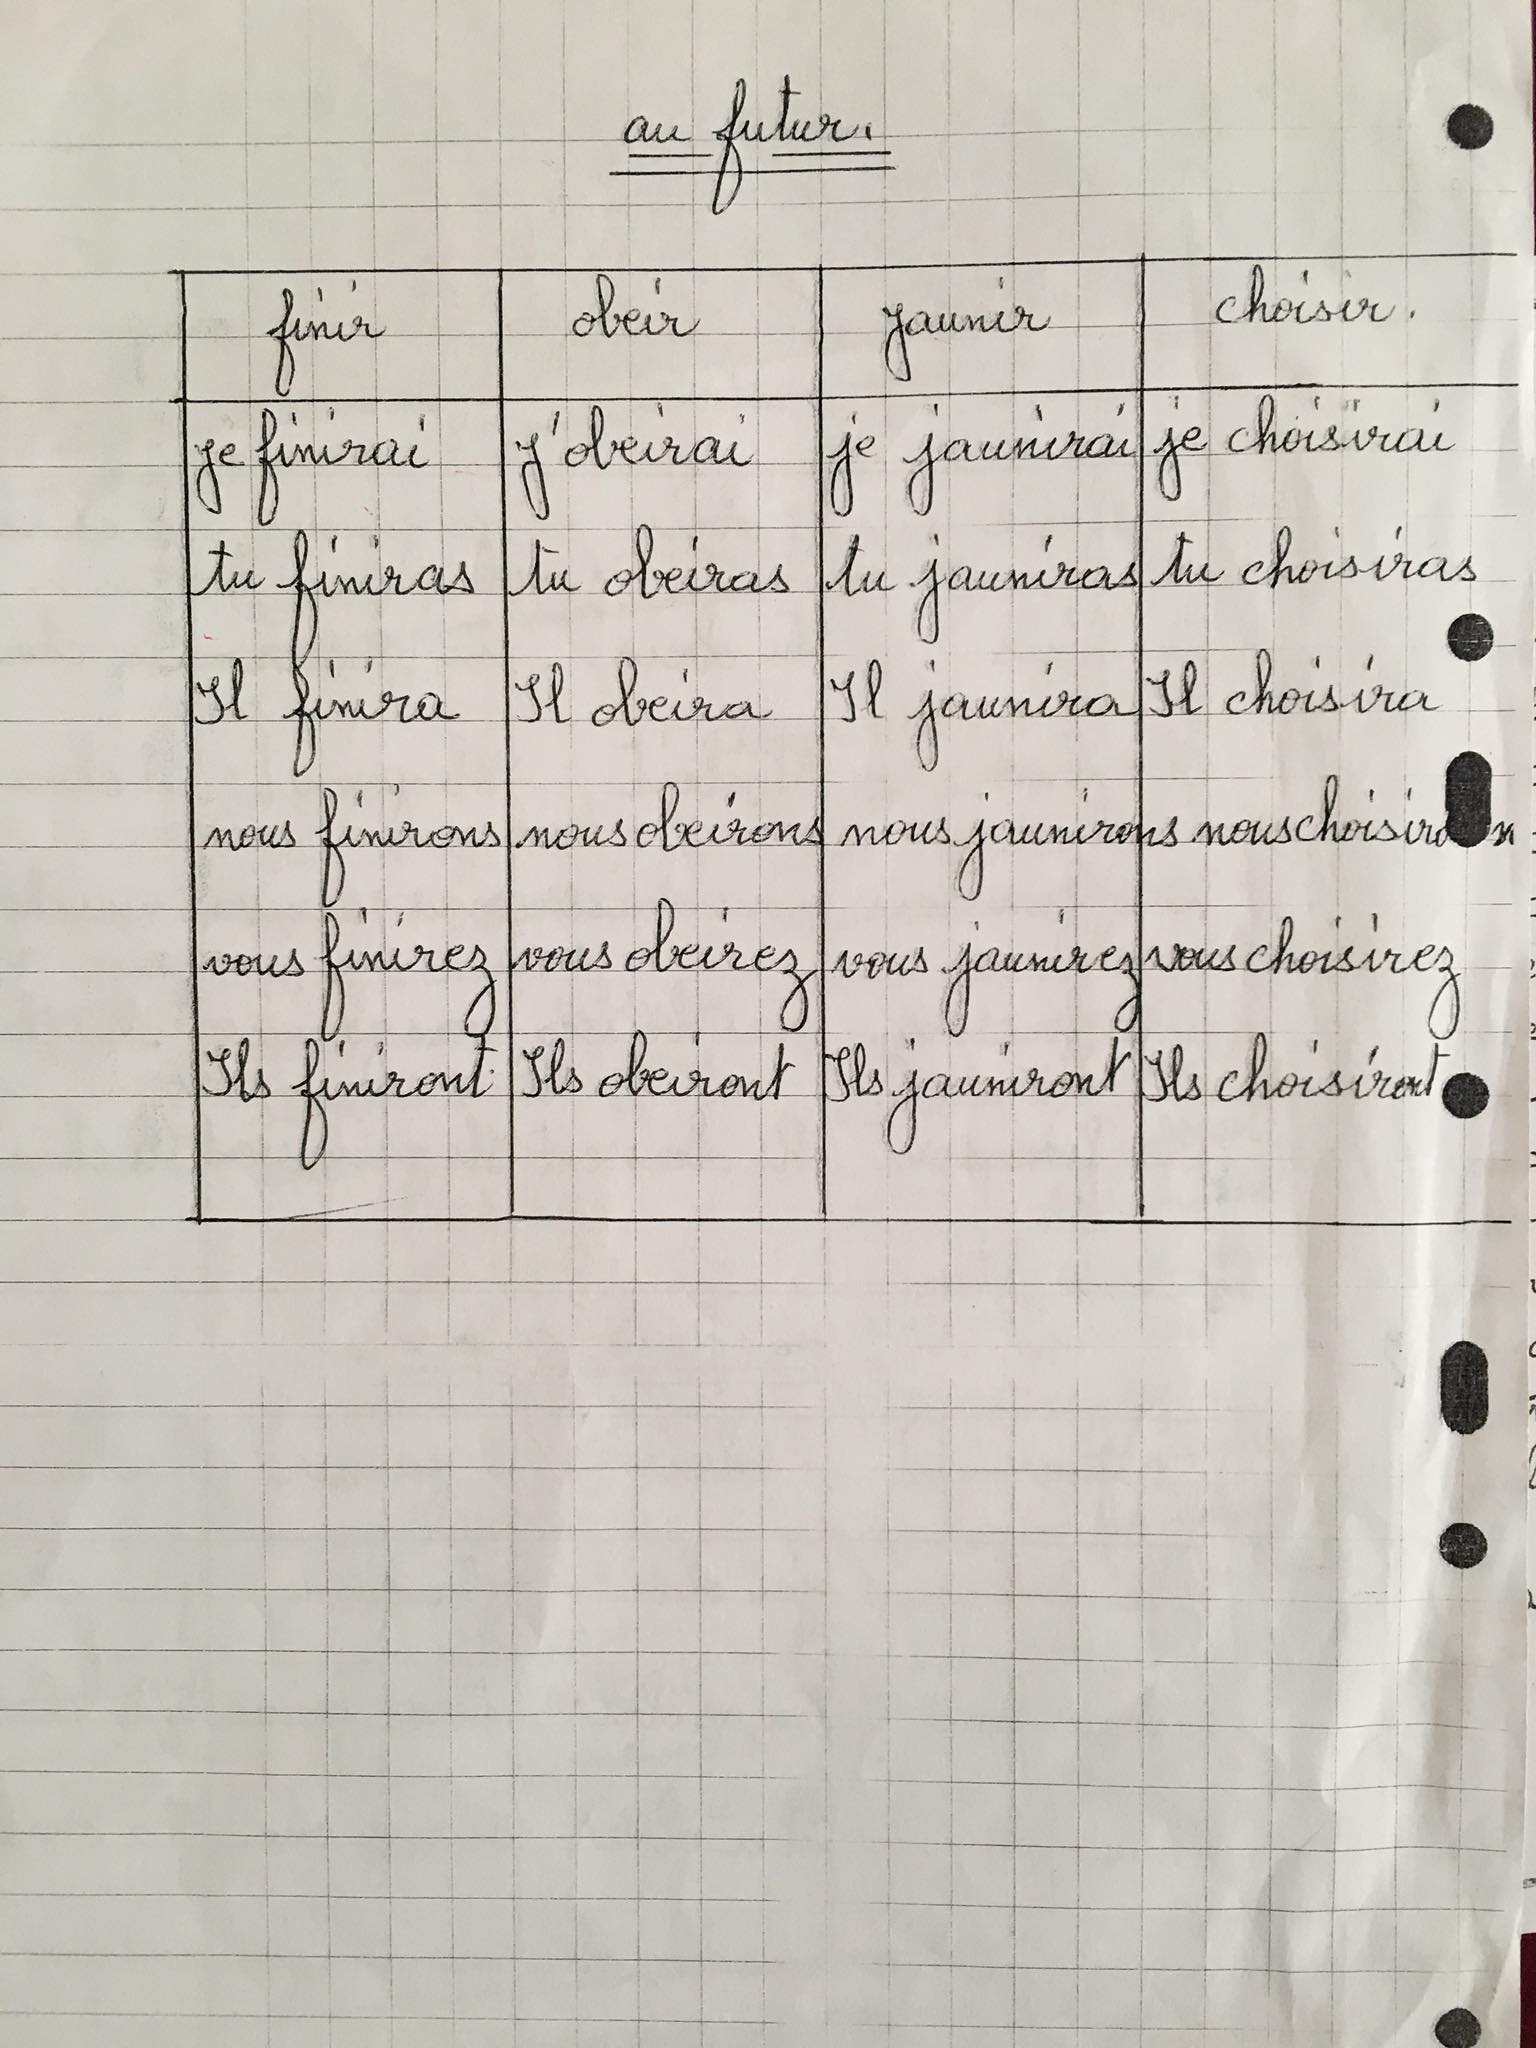 au futur.
finir obeir jaunir choisir.
je finirai j'obeirai je jaunirai je choisirai
tu finiras tu obeiras tu jauniras tu choisiras
Il finira Il obeira Il jaunira Il choisira
nous finirons nous obeirons nous jaunirons nous
vous finirez vous obeirez vous jaunirez vous choisirez
Ils finiront Ils obeiront Ils jauniront Ils choisiront